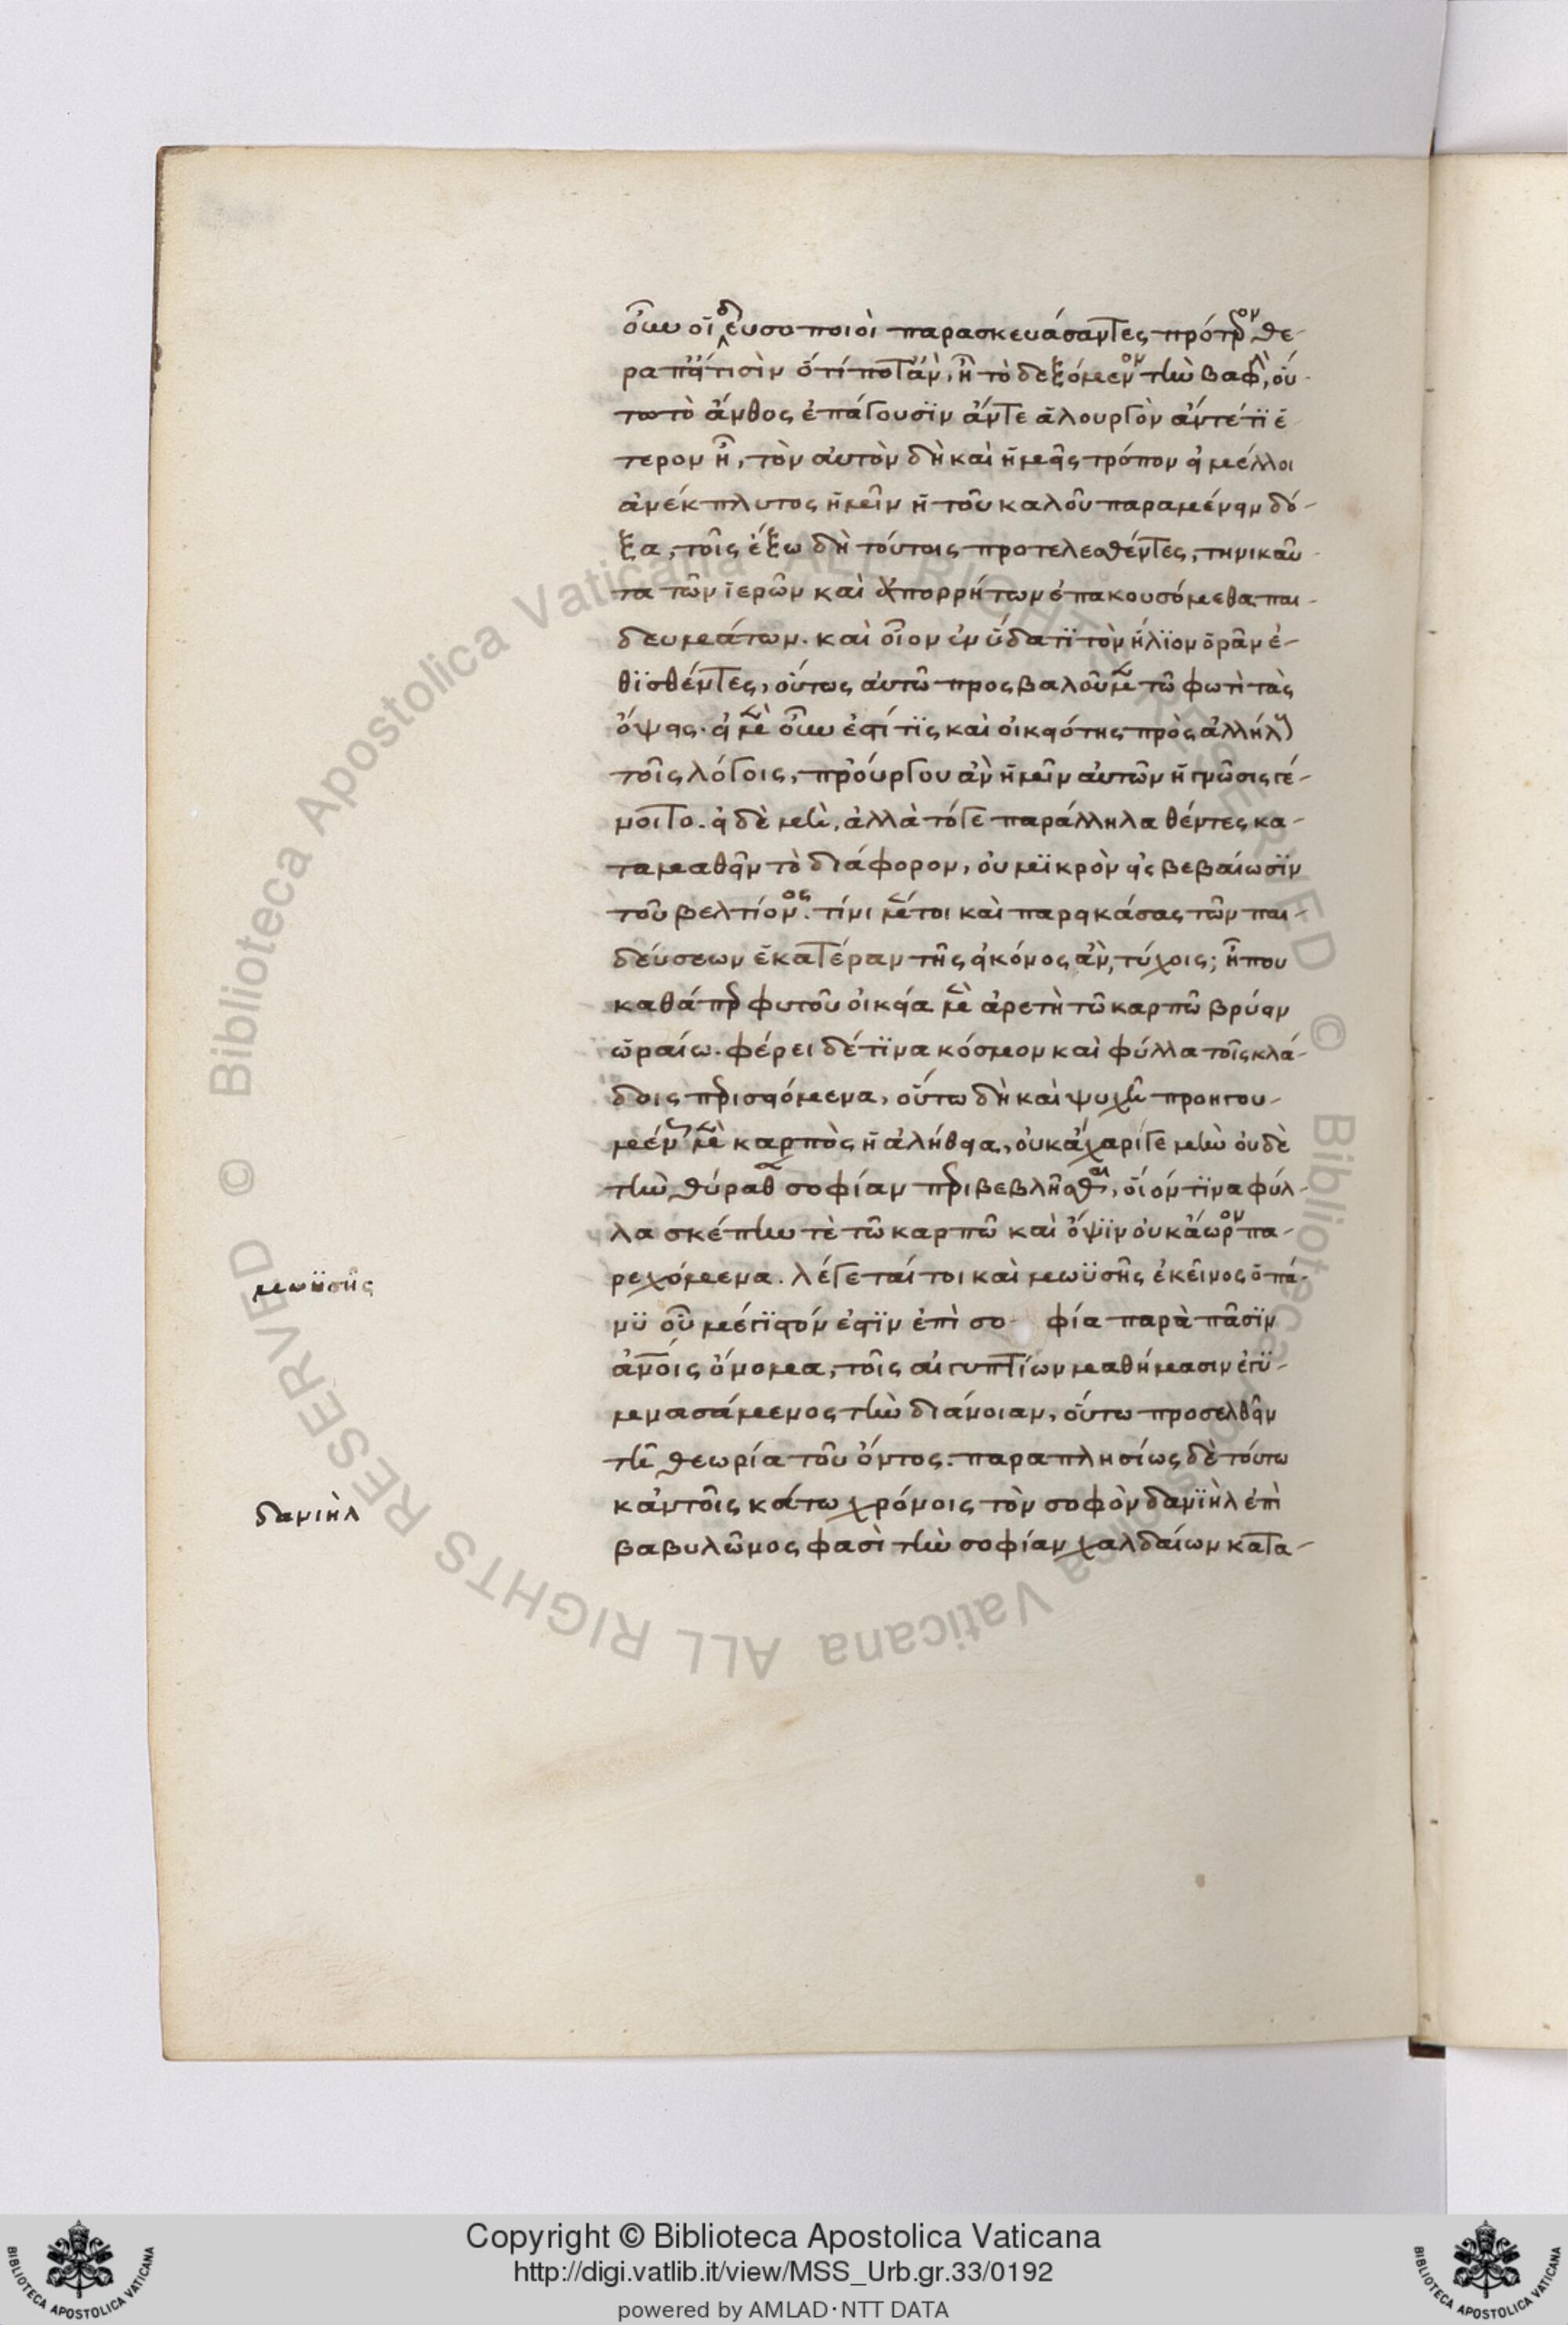 οὖν οἱ δευσοποιοὶ παρασκευάσαντες πρότερον θε-
ραπείαισὶν ὅτί ποτἂν ἦ τὸ δεξόμενον τὴν βαφὴν, οὕ-
τω τὸ ἄνθος ἐπάγουσϊν ἄντε ἁλουργὸν ἄντέτϊ ἕ-
τερον ἦ, τὸν αὐτὸν δὴ καὶ ἡμεῖς τρόπον εἰ μέλλοι
ἀνέκπλυτος ἡμῖν ἡ τοῦ καλοῦ παραμένειν δό-
ξα, τοῖς ἔξω δὴ τούτοις προτελεσθέντες, τηνικαῦ-
τα τῶν ἱερῶν καὶ ἀπορρήτων ἐπακουσόμεθα παι-
δευμάτων. καὶ οἷον ἐν ὕδατϊ τὸν ἥλϊον ὁρᾶν ἐ-
θϊσθέντες, οὕτως αὐτῶ προςβαλοῦμεν τῶ φωτὶ τὰς
ὄψεις. εἰ μὲν οὖν ἐστί τϊς καὶ οἰκειότης πρὸς ἀλλήλους
τοῖς λόγοις, πρὀύργου ἂν ἡμῖν αὐτῶν ἡ γνῶσις γέ-
νοιτο. εἰ δὲ μὴ, ἀλλὰ τόγε παράλληλα θέντες κα-
ταμαθεῖν τὸ διάφορον, οὐ μϊκρὸν εἰς βεβαίωσϊν
τοῦ βελτίονος. τίνι μέντοι καὶ παρεικάσας τῶν παι-
δεύσεων ἑκατέραν τῆς εἰκόνος ἂν, τύχοις; ἦπου
καθάπερ φυτοῦ οἰκεία μὲν ἀρετὴ τῶ καρπῶ βρύειν
ὡραίω. φέρει δέ τϊνα κόσμον καὶ φύλλα τοῖς κλά-
δοις περισειόμενα, οὕτω δὴ καὶ ψυχῆ προηγου-
μένως μὲν καρπὸς ἡ ἀλήθεια, οὐκἄχαρίγε μὴν οὐδὲ
τὴν θύραθεν σοφίαν περιβεβλῆσθαι, οἷόν τϊνα φύλ-
λα σκέπην τὲ τῶ καρπῶ καὶ ὄψϊν οὐκἄωρον πα-
ρεχόμενα. λέγεται τοι καὶ μωϋσῆς ἐκεῖνος ὁ πά-
νϋ οὗ μέγϊστόν ἐστϊν ἐπὶ σοφία παρὰ πᾶσϊν
ἀνοις ὄνομα, τοῖς αἰγυπτίων μαθήμασιν ἐγϋ-
μνασάμενος τὴν διάνοιαν, οὕτω προσελθεῖν
τῆ θεωρία τοῦ ὄντος. παραπλησίως δὲ τούτω
κἀντοῖς κάτω χρόνοις τὸν σοφὸν δανϊὴλ ἐπὶ
βαβυλῶνος φασὶ τὴν σοφίαν χαλδαίων κατα-
μωϋσῆς
δανιὴλ
Copyright © Biblioteca Apostolica Vaticana
http://digi.vatlib.it/view/MSS_Urb.gr.33/0192
powered by AMLAD·NTT DATA
BIBLIOTECA APOSTOLICA VATICANA
BIBLIOTECA APOSTOLICA VATICANA
© Biblioteca Apostolica Vaticana ALL RIGHTS RESERVED
© Biblioteca Apostolica Vaticana ALL RIGHTS RESERVED